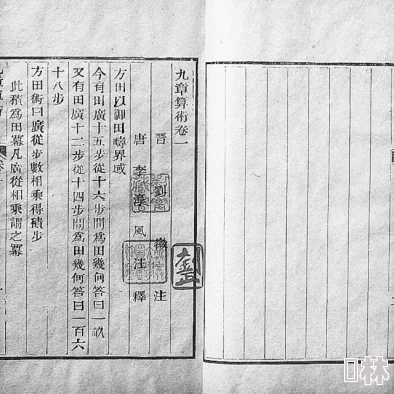 九章算術卷一
晉 劉 徽 注
唐 李淳風 注釋
方田以御田疇界域
今有田廣十五步從十六步問爲田幾何答曰一畝
又有田廣十二步從十四步問爲田幾何答曰一百六
十八步
方田術曰廣從步數相乘得積步
此積爲田冪凡廣從相乘謂之冪
林